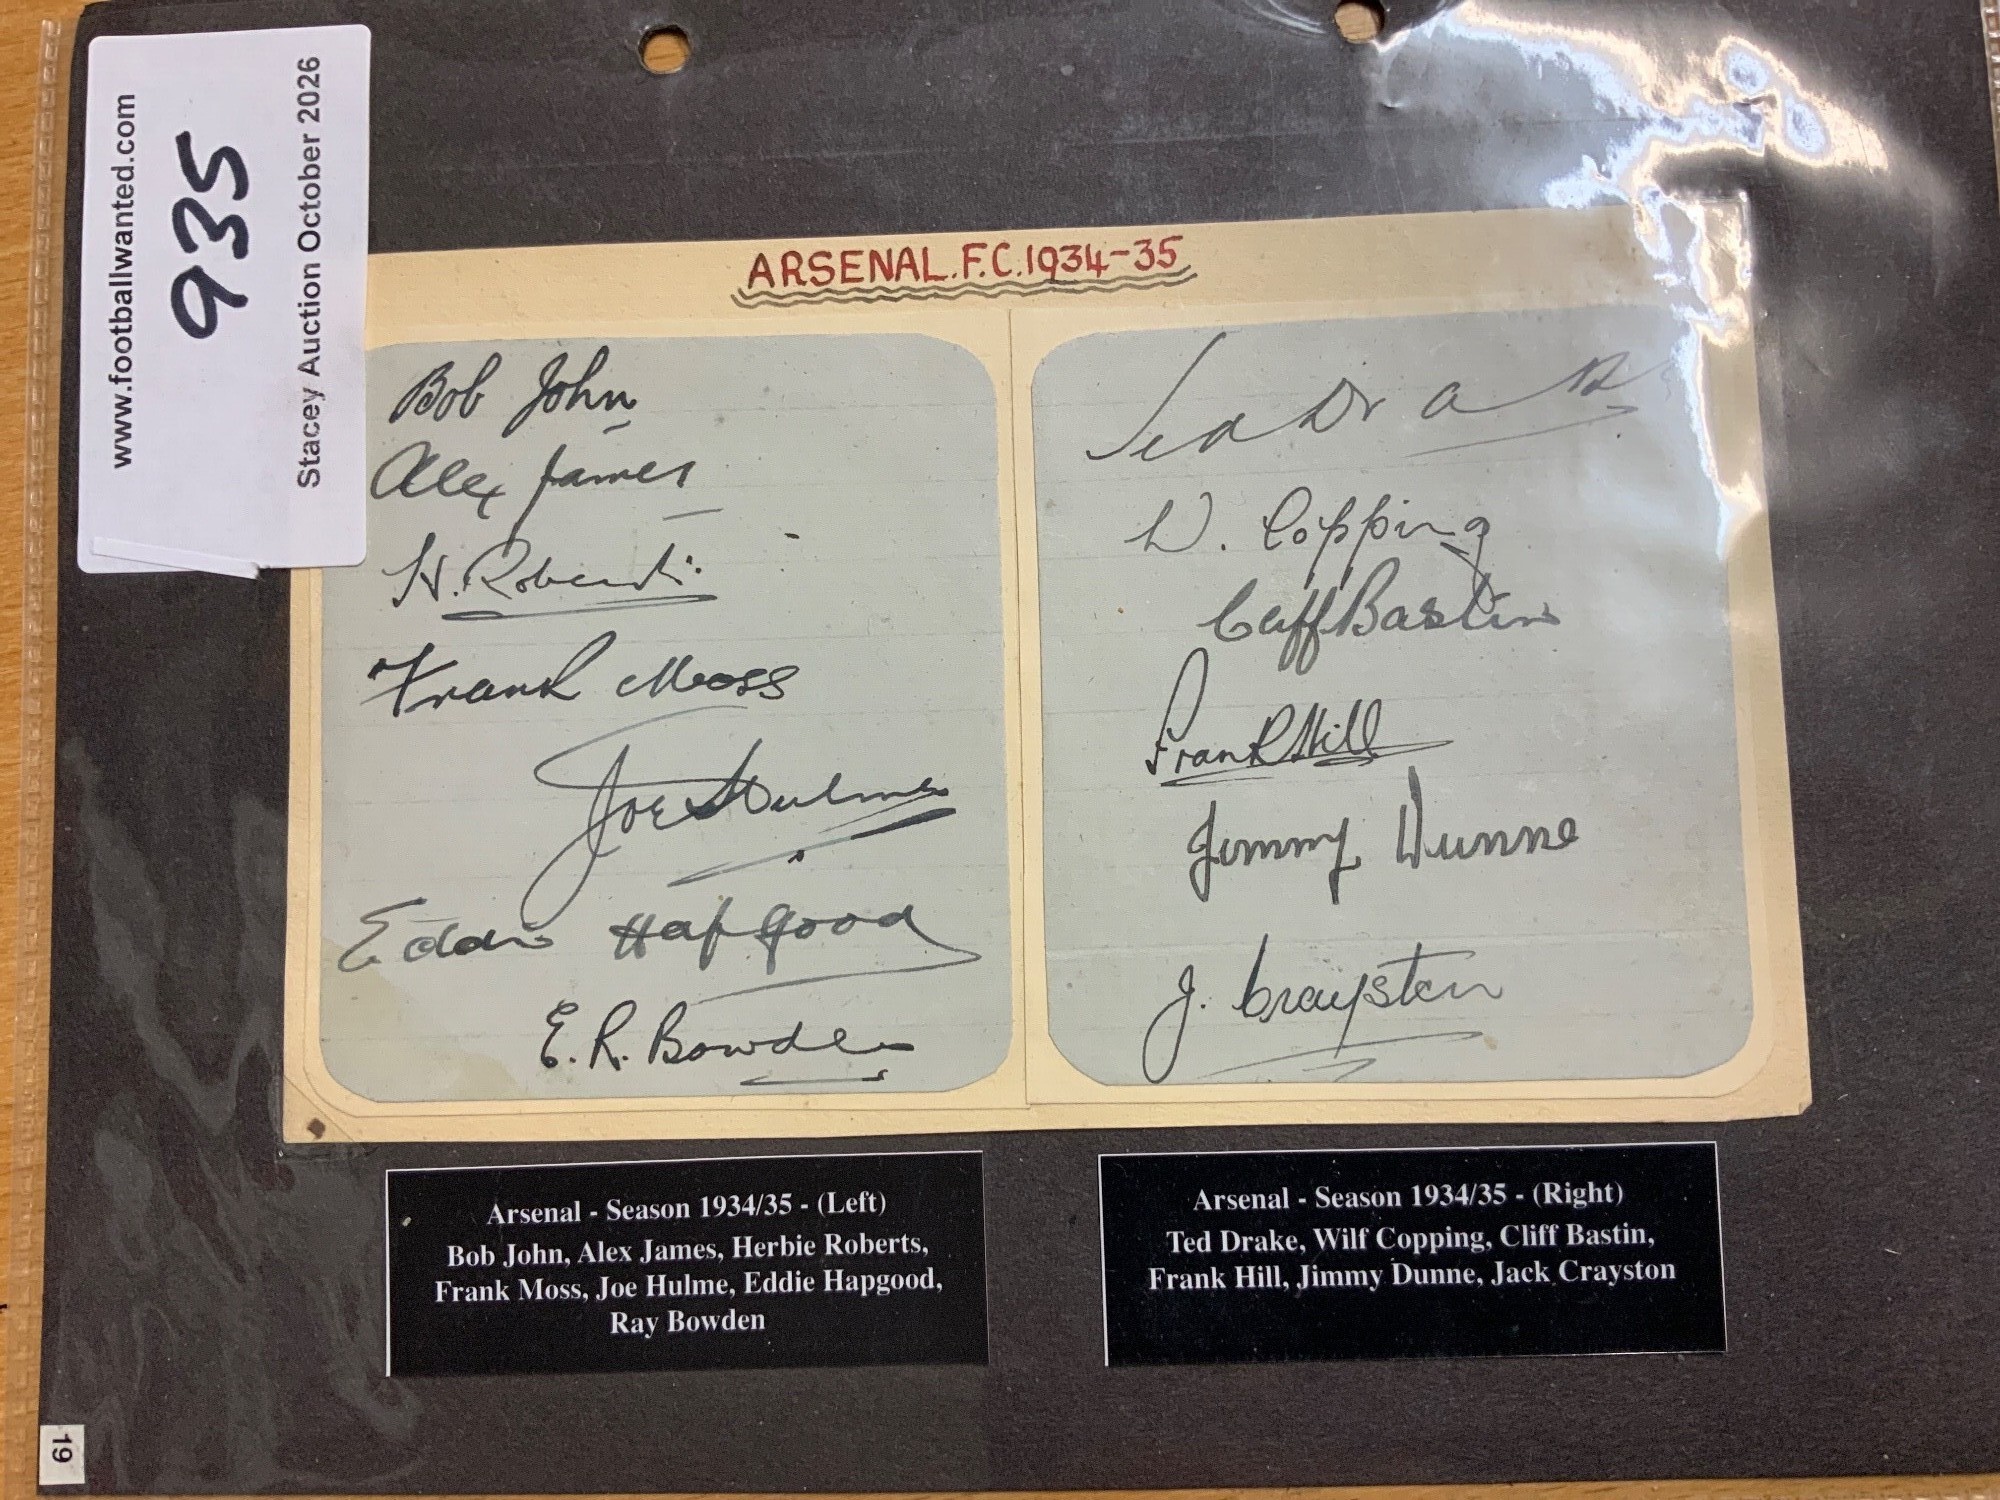 www.footballwanted.com
935
Stacey Auction October 2026
ARSENAL.F.C.1934-35
Bob John
Alex James
H. Roberts
Frank Moss
Joe Hulme
Eddie Hapgood
E. R. Bowden
Ted Drake
W. Copping
Cliff Bastin
Frank Hill
Jimmy Dunne
J. Crayston
Arsenal - Season 1934/35 - (Left)
Bob John, Alex James, Herbie Roberts,
Frank Moss, Joe Hulme, Eddie Hapgood,
Ray Bowden
Arsenal - Season 1934/35 - (Right)
Ted Drake, Wilf Copping, Cliff Bastin,
Frank Hill, Jimmy Dunne, Jack Crayston
19